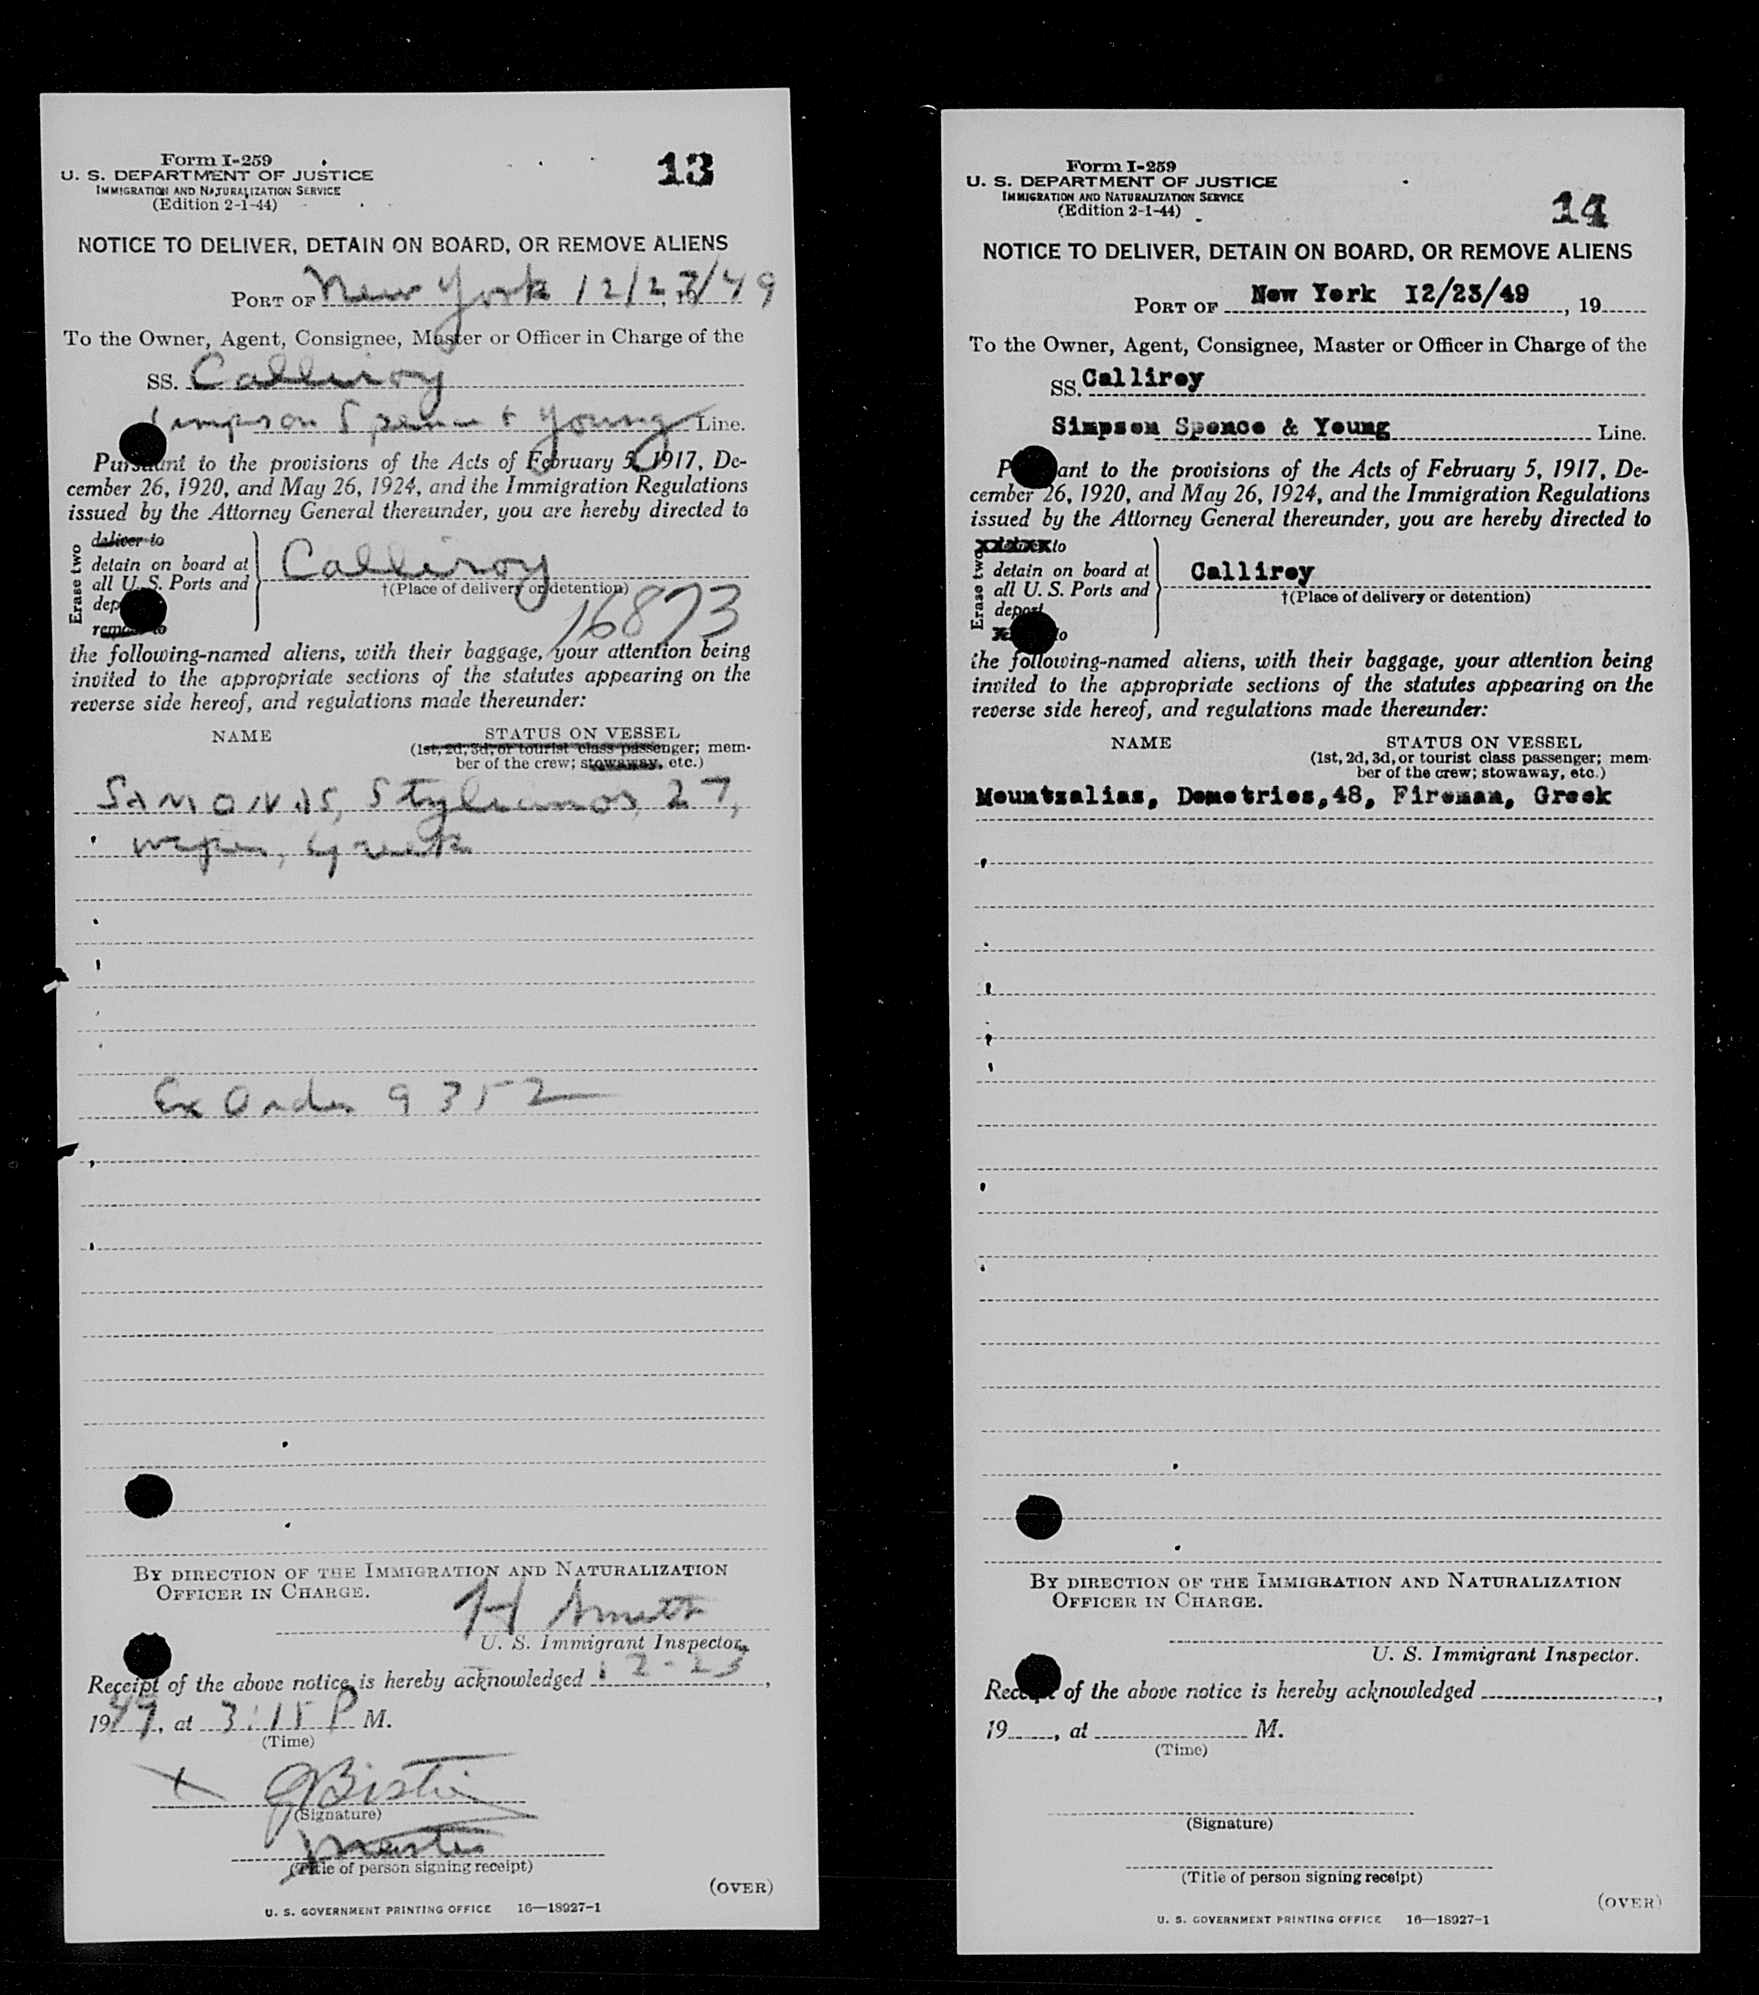 Form I-259
U. S. DEPARTMENT OF JUSTICE
IMMIGRATION AND NATURALIZATION SERVICE
(Edition 2-1-44)
13
NOTICE TO DELIVER, DETAIN ON BOARD, OR REMOVE ALIENS
PORT OF New York 12/23/49
To the Owner, Agent, Consignee, Master or Officer in Charge of the
SS. Calliroy
Simpson Spence & Young Line.
Pursuant to the provisions of the Acts of February 5, 1917, De-
cember 26, 1920, and May 26, 1924, and the Immigration Regulations
issued by the Attorney General thereunder, you are hereby directed to
Erase two
deliver to
detain on board at
all U. S. Ports and
remove to
Calliroy
†(Place of delivery or detention)
16873
the following-named aliens, with their baggage, your attention being
invited to the appropriate sections of the statutes appearing on the
reverse side hereof, and regulations made thereunder:
NAME
STATUS ON VESSEL
(1st, 2d, 3d, or tourist class passenger; mem-
ber of the crew; stowaway, etc.)
SAMONAS, Stylianos, 27,
wiper, Greek
Ex Order 9352
BY DIRECTION OF THE IMMIGRATION AND NATURALIZATION
OFFICER IN CHARGE.
H
U. S. Immigrant Inspector.
Receipt of the above notice is hereby acknowledged 12-23,
1949, at 3:15 P M.
(Time)
(Signature)
Master
(Title of person signing receipt)
(OVER)
U. S. GOVERNMENT PRINTING OFFICE 16—18927-1
Form I-259
U. S. DEPARTMENT OF JUSTICE
IMMIGRATION AND NATURALIZATION SERVICE
(Edition 2-1-44)
14
NOTICE TO DELIVER, DETAIN ON BOARD, OR REMOVE ALIENS
PORT OF New York 12/23/49, 19
To the Owner, Agent, Consignee, Master or Officer in Charge of the
SS. Calliroy
Simpson Spence & Young Line.
Pursuant to the provisions of the Acts of February 5, 1917, De-
cember 26, 1920, and May 26, 1924, and the Immigration Regulations
issued by the Attorney General thereunder, you are hereby directed to
Erase two
deliver to
detain on board at
all U. S. Ports and
deport
to
Calliroy
†(Place of delivery or detention)
the following-named aliens, with their baggage, your attention being
invited to the appropriate sections of the statutes appearing on the
reverse side hereof, and regulations made thereunder:
NAME
STATUS ON VESSEL
(1st, 2d, 3d, or tourist class passenger; mem-
ber of the crew; stowaway, etc.)
Mountzalias, Demetrios,48, Fireman, Greek
BY DIRECTION OF THE IMMIGRATION AND NATURALIZATION
OFFICER IN CHARGE.
U. S. Immigrant Inspector.
Receipt of the above notice is hereby acknowledged ,
19 , at M.
(Time)
(Signature)
(Title of person signing receipt)
(OVER)
U. S. GOVERNMENT PRINTING OFFICE 16—18927-1